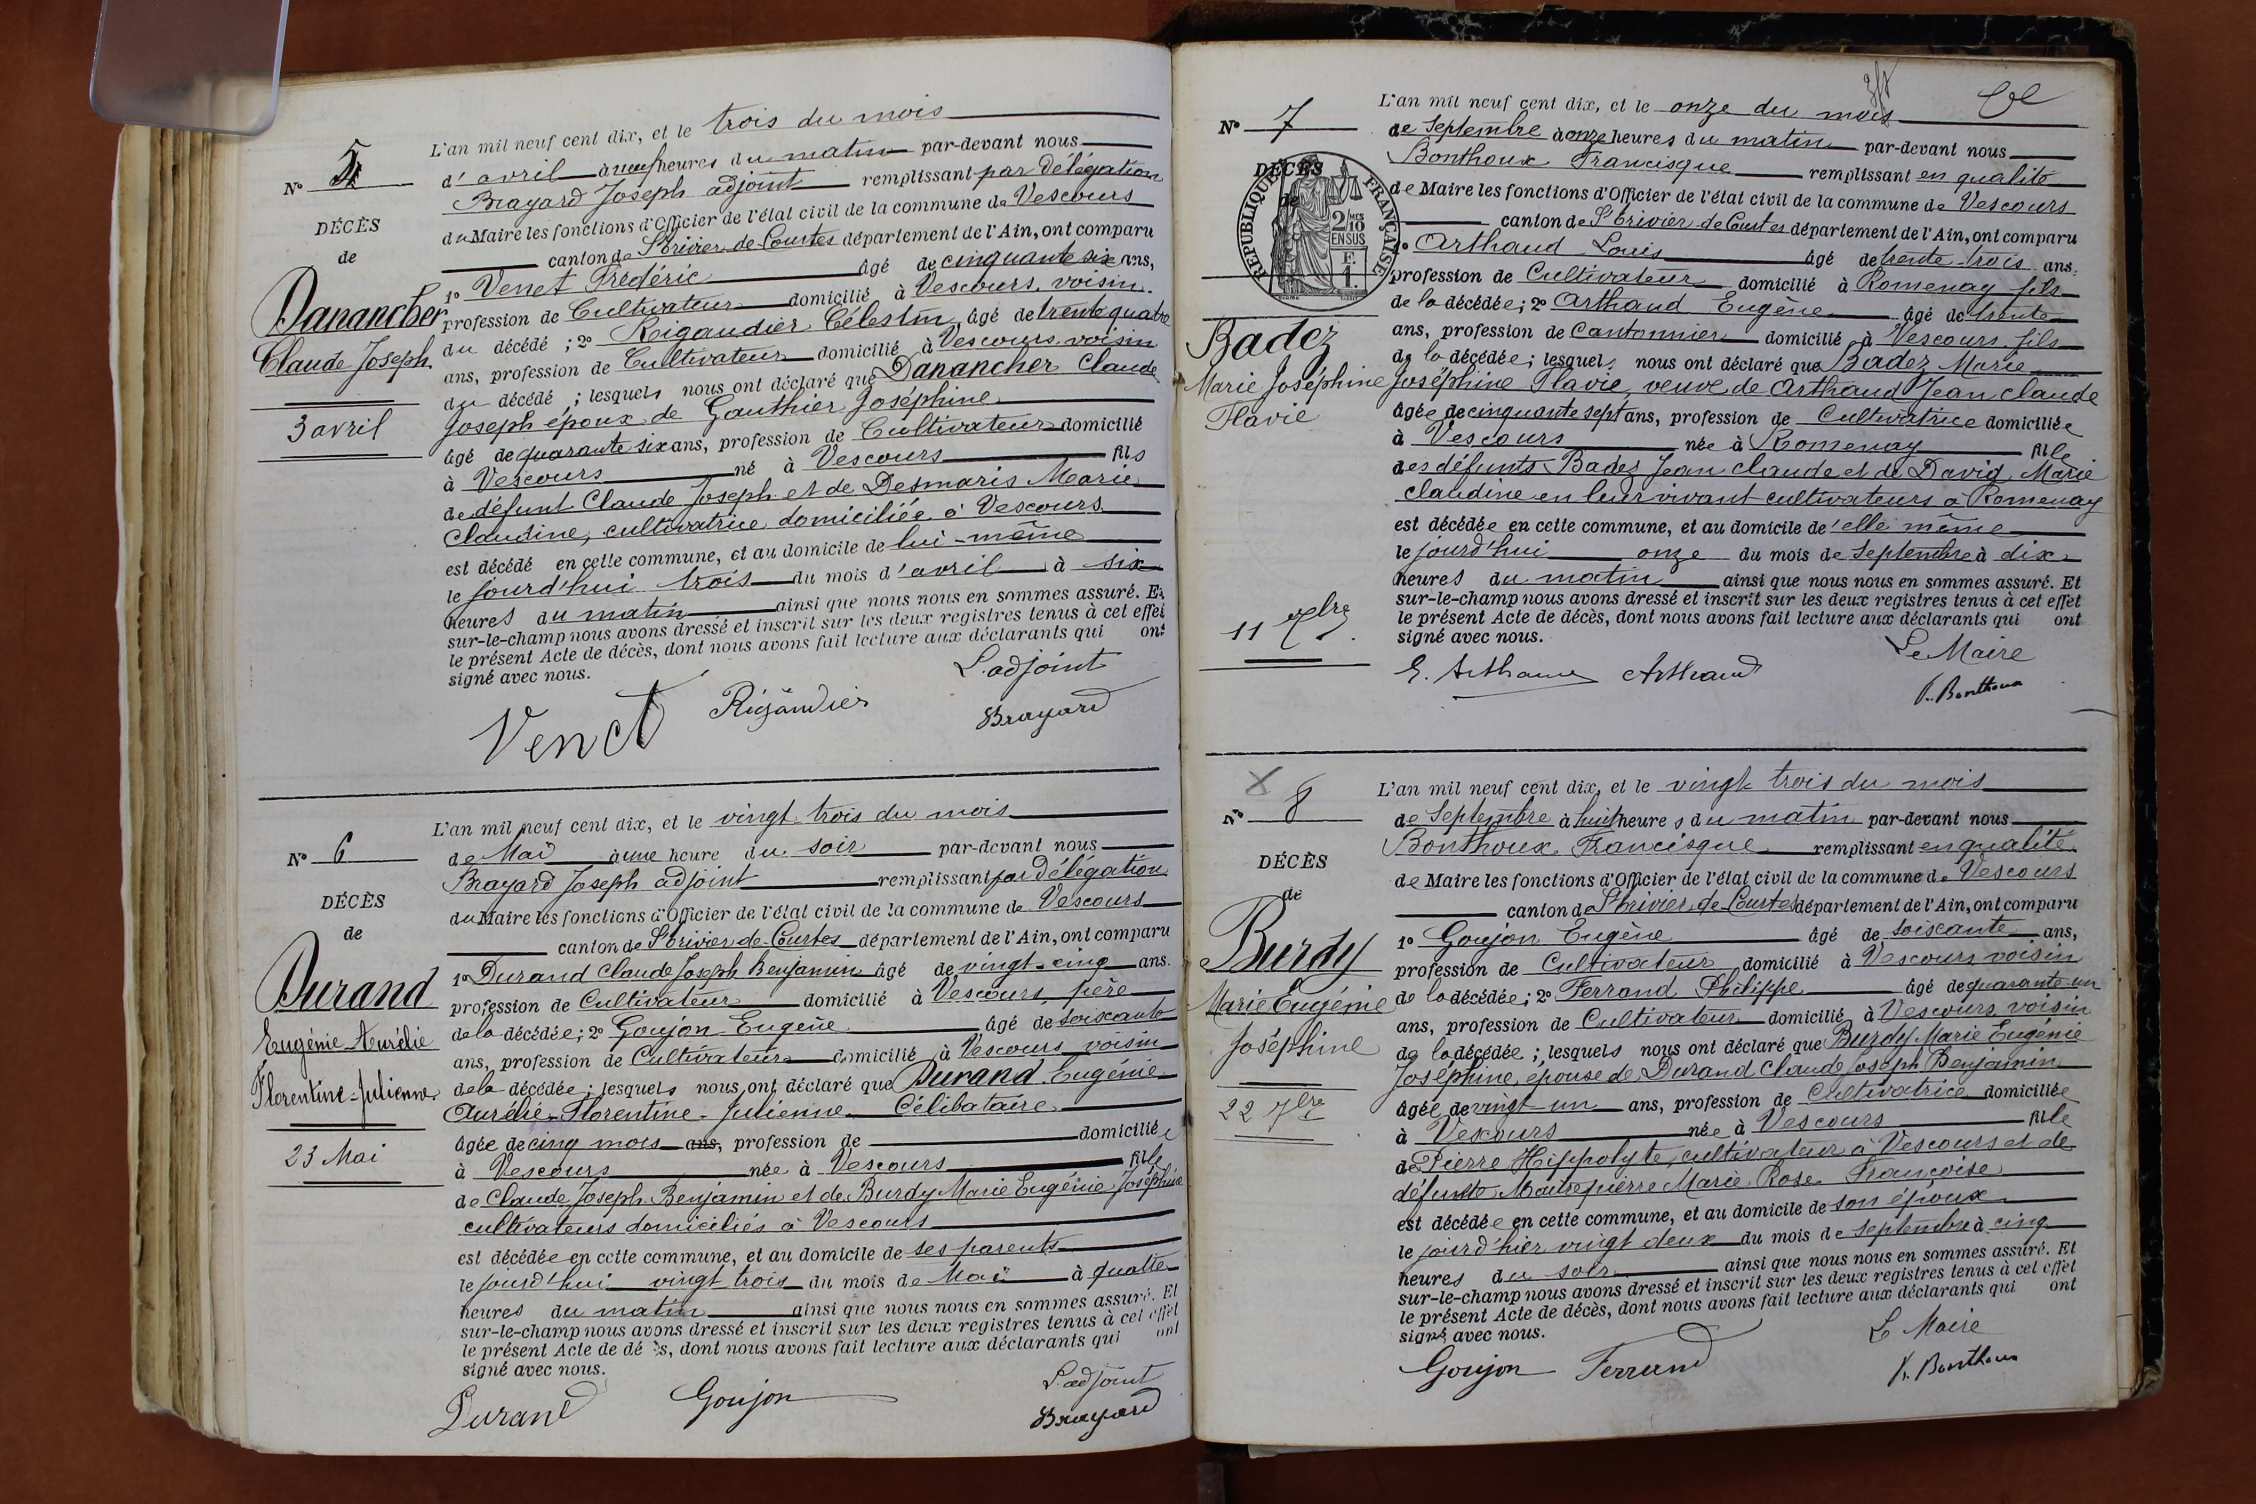 N° 5
DÉCÈS
de
Danancher
Claude Joseph
3 avril
L'an mil neuf cent dix, et le trois du mois
d'avril à neuf heures du matin par-devant nous
Brayard Joseph adjoint remplissant par délégation
du Maire les fonctions d'Officier de l'état civil de la commune de Vescours
canton de St Trivier de Courtes département de l'Ain, ont comparu
1° Venet Frédéric âgé de cinquante six ans,
profession de Cultivateur domicilié à Vescours, voisin
du décédé ; 2° Rigaudier Célestin âgé de trente quatre
ans, profession de Cultivateur domicilié à Vescours voisin
du décédé ; lesquels nous ont déclaré que Danancher Claude
Joseph époux de Gauthier Joséphine
âgé de quarante six ans, profession de Cultivateur domicilié
à Vescours né à Vescours fils
de défunt Claude Joseph et de Desmaris Marie
Claudine, cultivatrice domiciliée à Vescours
est décédé en cette commune, et au domicile de lui-même
le jourd'hui trois du mois d'avril à six
heures du matin ainsi que nous nous en sommes assuré. Et
sur-le-champ nous avons dressé et inscrit sur les deux registres tenus à cet effet
le présent Acte de décès, dont nous avons fait lecture aux déclarants qui ont
signé avec nous.
L'adjoint
Venet Rigaudier Brayard
N° 6
DÉCÈS
de
Durand
Eugénie-Aurélie
Florentine-Julienne
23 Mai
L'an mil neuf cent dix, et le vingt trois du mois
de Mai à une heure du soir par-devant nous
Brayard Joseph adjoint remplissant par délégation
du Maire les fonctions d'Officier de l'état civil de la commune de Vescours
canton de St Trivier de Courtes département de l'Ain, ont comparu
1° Durand Claude Joseph Benjamin âgé de vingt-cinq ans.
profession de Cultivateur domicilié à Vescours, père
de la décédée ; 2° Goujon Eugène âgé de soixante
ans, profession de Cultivateur domicilié à Vescours voisin
de la décédée ; lesquels nous ont déclaré que Durand Eugénie
Aurélie-Florentine-Julienne Célibataire
âgée de cinq mois ans, profession de domiciliée
à Vescours née à Vescours fille
de Claude Joseph Benjamin et de Burdy Marie Eugénie Joséphine
cultivateurs domiciliés à Vescours
est décédée en cette commune, et au domicile de ses parents
le jourd'hui vingt trois du mois de Mai à quatre
heures du matin ainsi que nous nous en sommes assuré. Et
sur-le-champ nous avons dressé et inscrit sur les deux registres tenus à cet effet
le présent Acte de décès, dont nous avons fait lecture aux déclarants qui ont
signé avec nous.
L'adjoint
Durand Goujon Brayard
N° 7
DÉCÈS
de
RÉPUBLIQUE FRANÇAISE
2/10 MES
EN SUS
F.
1.
Badez
Marie Joséphine
Flavie
11 7bre
L'an mil neuf cent dix, et le onze du mois
de Septembre à onze heures du matin par-devant nous
Bonthoux Francisque remplissant en qualité
de Maire les fonctions d'Officier de l'état civil de la commune de Vescours
canton de St Trivier de Courtes département de l'Ain, ont comparu
1° Arthaud Louis âgé de trente-trois ans,
profession de Cultivateur domicilié à Romenay fils
de la décédée ; 2° Arthaud Eugène âgé de trente
ans, profession de Cantonnier domicilié à Vescours fils
de la décédée ; lesquels nous ont déclaré que Badez Marie
Joséphine Flavie, veuve de Arthaud Jean Claude
âgée de cinquante sept ans, profession de Cultivatrice domiciliée
à Vescours née à Romenay fille
des défunts Badez Jean Claude et de David Marie
Claudine en leur vivant cultivateurs à Romenay
est décédée en cette commune, et au domicile de elle même
le jourd'hui onze du mois de Septembre à dix
heures du matin ainsi que nous nous en sommes assuré. Et
sur-le-champ nous avons dressé et inscrit sur les deux registres tenus à cet effet
le présent Acte de décès, dont nous avons fait lecture aux déclarants qui ont
signé avec nous.
Le Maire
E. Arthaud Arthaud F. Bonthoux
N° 8
DÉCÈS
de
Burdy
Marie Eugénie
Joséphine
22 7bre
L'an mil neuf cent dix, et le vingt trois du mois
de Septembre à huit heures du matin par-devant nous
Bonthoux Francisque remplissant en qualité
de Maire les fonctions d'Officier de l'état civil de la commune de Vescours
canton de St Trivier de Courtes département de l'Ain, ont comparu
1° Goujon Eugène âgé de soixante ans,
profession de Cultivateur domicilié à Vescours voisin
de la décédée ; 2° Ferrand Philippe âgé de quarante-un
ans, profession de Cultivateur domicilié à Vescours voisin
de la décédée ; lesquels nous ont déclaré que Burdy Marie Eugénie
Joséphine, épouse de Durand Claude Joseph Benjamin
âgée de vingt-un ans, profession de Cultivatrice domiciliée
à Vescours née à Vescours fille
de Pierre Hippolyte, cultivateur à Vescours et de
défunte Maitrepierre Marie Rose Françoise
est décédée en cette commune, et au domicile de son époux
le jourd'hier vingt deux du mois de Septembre à cinq
heures du soir ainsi que nous nous en sommes assuré. Et
sur-le-champ nous avons dressé et inscrit sur les deux registres tenus à cet effet
le présent Acte de décès, dont nous avons fait lecture aux déclarants qui ont
signé avec nous.
Le Maire
Goujon Ferrand F. Bonthoux